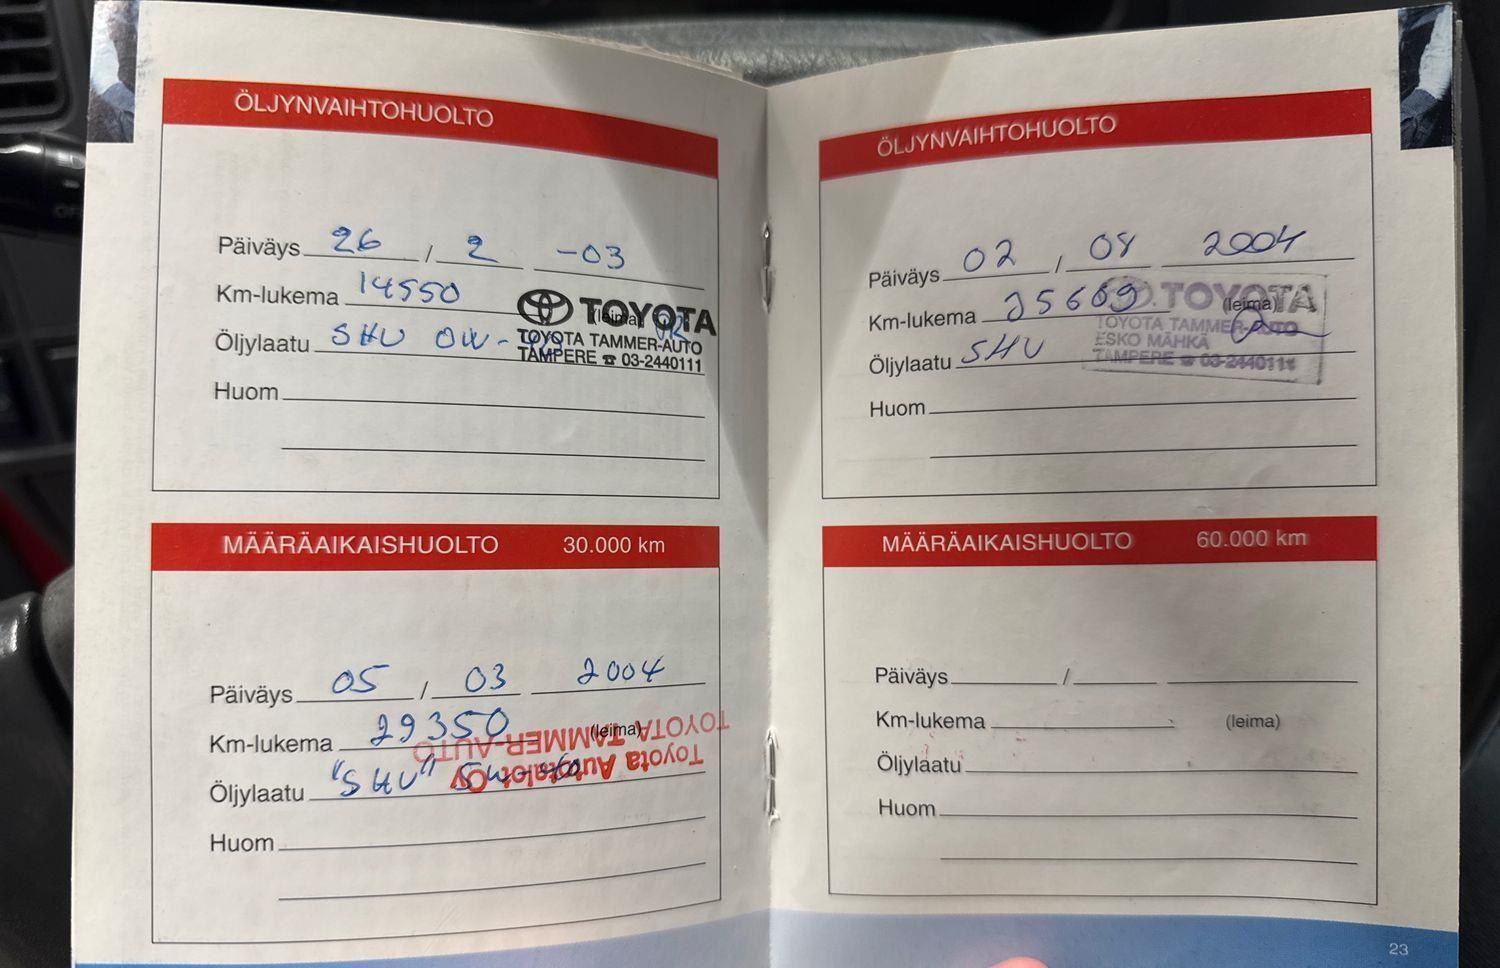 ÖLJYNVAIHTOHUOLTO
Päiväys 26 / 2 -03
Km-lukema 14550 (leima)
Öljylaatu SHU 0W-
TOYOTA
TOYOTA TAMMER-AUTO
TAMPERE ☎ 03-2440111
Huom
MÄÄRÄAIKAISHUOLTO 30.000 km
Päiväys 05 / 03 2004
Km-lukema 29350 (leima)
Öljylaatu "SHU" 5W-40
Toyota Autotalot Oy
TOYOTA TAMMER-AUTO
Huom
ÖLJYNVAIHTOHUOLTO
Päiväys 02 / 08 2004
Km-lukema 35609 (leima)
Öljylaatu SHU
TOYOTA
TOYOTA TAMMER-AUTO
ESKO MÄHKÄ
TAMPERE ☎ 03-2440111
Huom
MÄÄRÄAIKAISHUOLTO 60.000 km
Päiväys /
Km-lukema (leima)
Öljylaatu
Huom
23